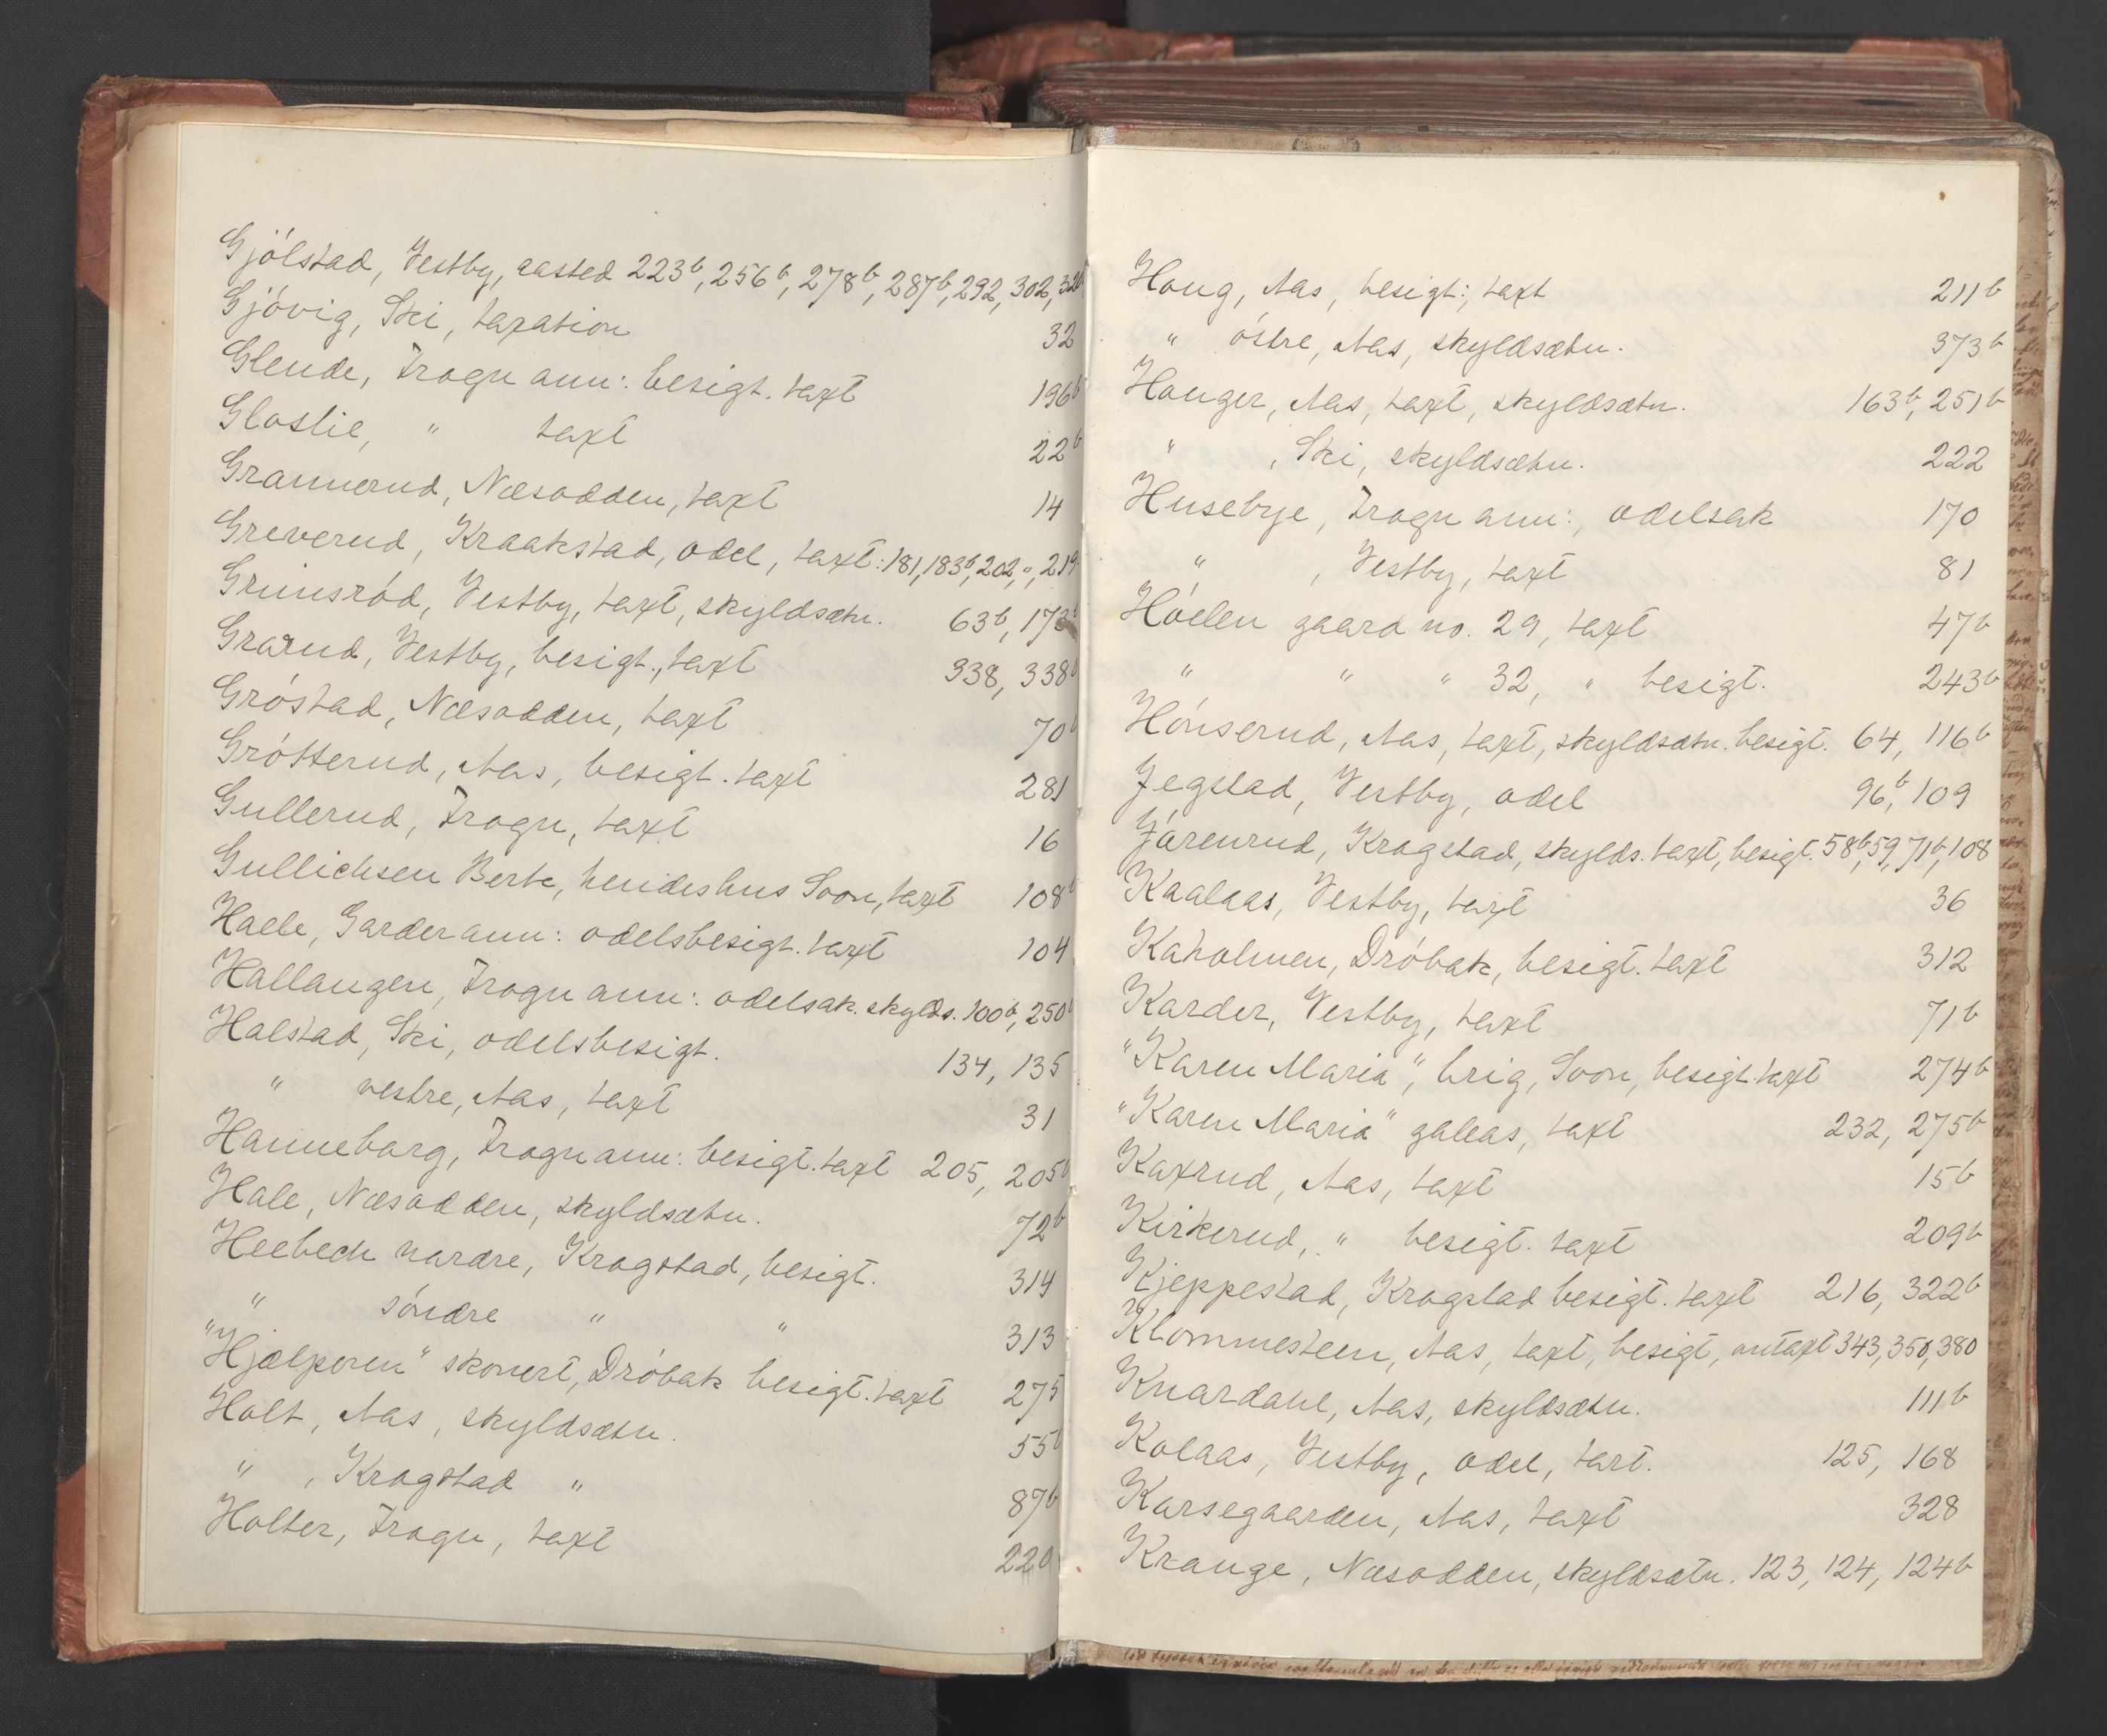 Gjölstad, Vestby, aasted 223b, 256b, 278b, 287b, 292, 302, 320
Gjövig, Ski, taxation 32
Glende, Frogn ann: besigt. taxt 196b
Gloslie, " taxt 22b
Grannerud, Næsodden, taxt 14
Greverud, Kraakstad, odel, taxt: 181, 183b, 202, ", 219
Grimsröd, Vestby, taxt, skyldsætn. 63b, 173b
Grarud, Vestby, besigt., taxt 338, 338b
Gröstad, Næsodden, taxt 70b
Grötterud, Aas, besigt. taxt 281
Gullerud, Frogn, taxt 16
Gullichsen Berte, hendes hus Soon, taxt 108b
Haele, Garder ann: odelsbesigt. taxt 104
Hallangen, Frogn ann: odelsak. skylds. 100b, 250b
Halstad, Ski, odelsbesigt. 134, 135
" vestre, Aas, taxt 31
Hanneborg, Frogn ann: besigt. taxt 205, 205b
Hale, Næsodden, skyldsætn. 72b
Heebech nordre, Krogstad, besigt. 314
" söndre " " 313
"Hjælperen" skonert, Dröbak besigt. taxt 275
Holt, Aas, skyldsætn. 55b
" , Krogstad " 87b
Holter, Frogn, taxt 220
Houg, Aas, besigt:, taxt 211b
" östre, Aas, skyldsætn. 373b
Houger, Aas, taxt, skyldsætn. 163b, 251b
" , Ski, skyldsætn. 222
Husebye, Frogn ann:, odelsak 170
" , Vestby, taxt 81
Höelen gaard no. 29, taxt 47b
" " " 32, " besigt. 243b
Hönserud, Aas, taxt, skyldsætn. besigt. 64, 116b
Jegstad, Vestby, odel 96b, 109
Jörenrud, Krogstad, skylds. taxt, besigt. 58b, 59, 71b, 108
Kaalaas, Vestby, taxt 36
Kaholmen, Dröbak, besigt. taxt 312
Karder, Vestby, taxt 71b
"Karen Maria", brig, Soon, besigt. taxt 274b
"Karen Maria" galeas, taxt 232, 275b
Kaxrud, Aas, taxt 15b
Kirkerud, " besigt. taxt 209b
Kjeppestad, Krogstad besigt. taxt 216, 322b
Klommesteen, Aas, taxt, besigt, omtaxt 343, 350, 380
Knardahl, Aas, skyldsætn. 111b
Kolaas, Vestby, odel, taxt. 125, 168
Korsegaarden, Aas, taxt 328
Krange, Næsodden, skyldsætn. 123, 124, 124b